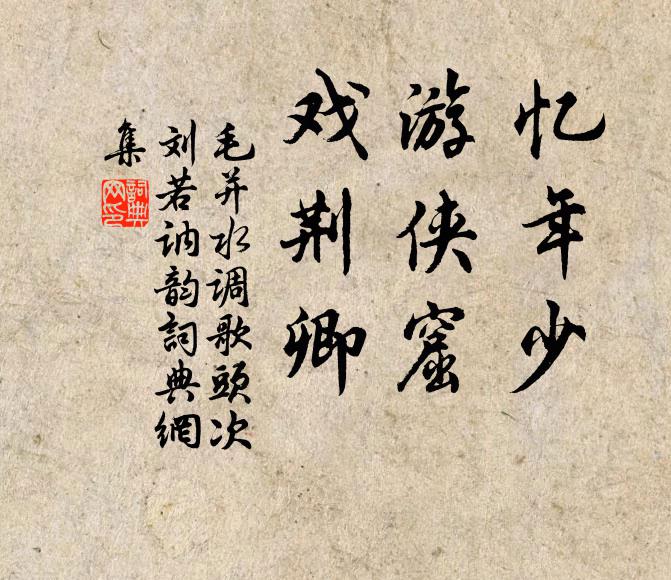 忆年少
游侠窟
戏荆卿
毛并水调歌头次
刘若讷韵詞典網
集
詞典
网印